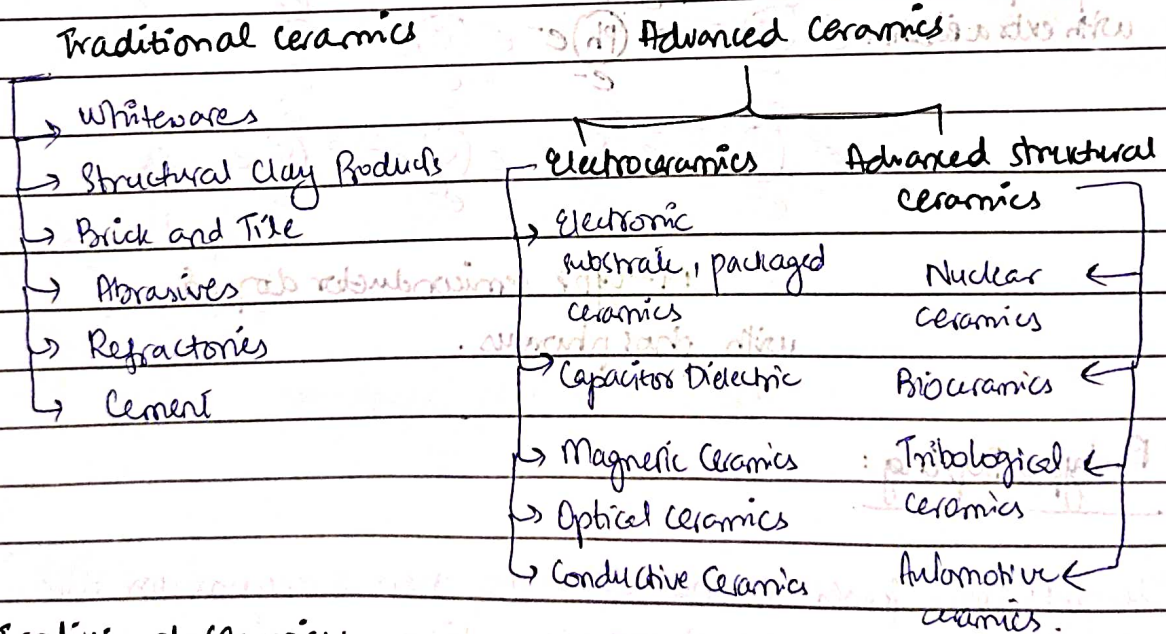 Traditional Ceramics
Whitewares
Structural Clay Products
Brick and Tile
Abrasives
Refractories
Cement
Advanced Ceramics
Electroceramics
Electronic
substrate, packaged
ceramics
Capacitor Dielectric
Magneric Ceramics
Optical Ceramics
Conductive Ceramics
Advanced structural
ceramics
Nuclear
ceramics
Bioceramics
Tribological
ceramics
Automotive
ceramics.